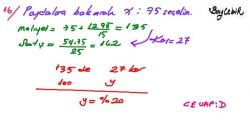 16/ Paydalara bakarak x: 75 seçelim.
maliyet = 75 + 12.75/15 = 135
Satış = 54.75/25 = 162
Kar = 27
135 de 27 kar
100 y
y = %20
CEVAP: D